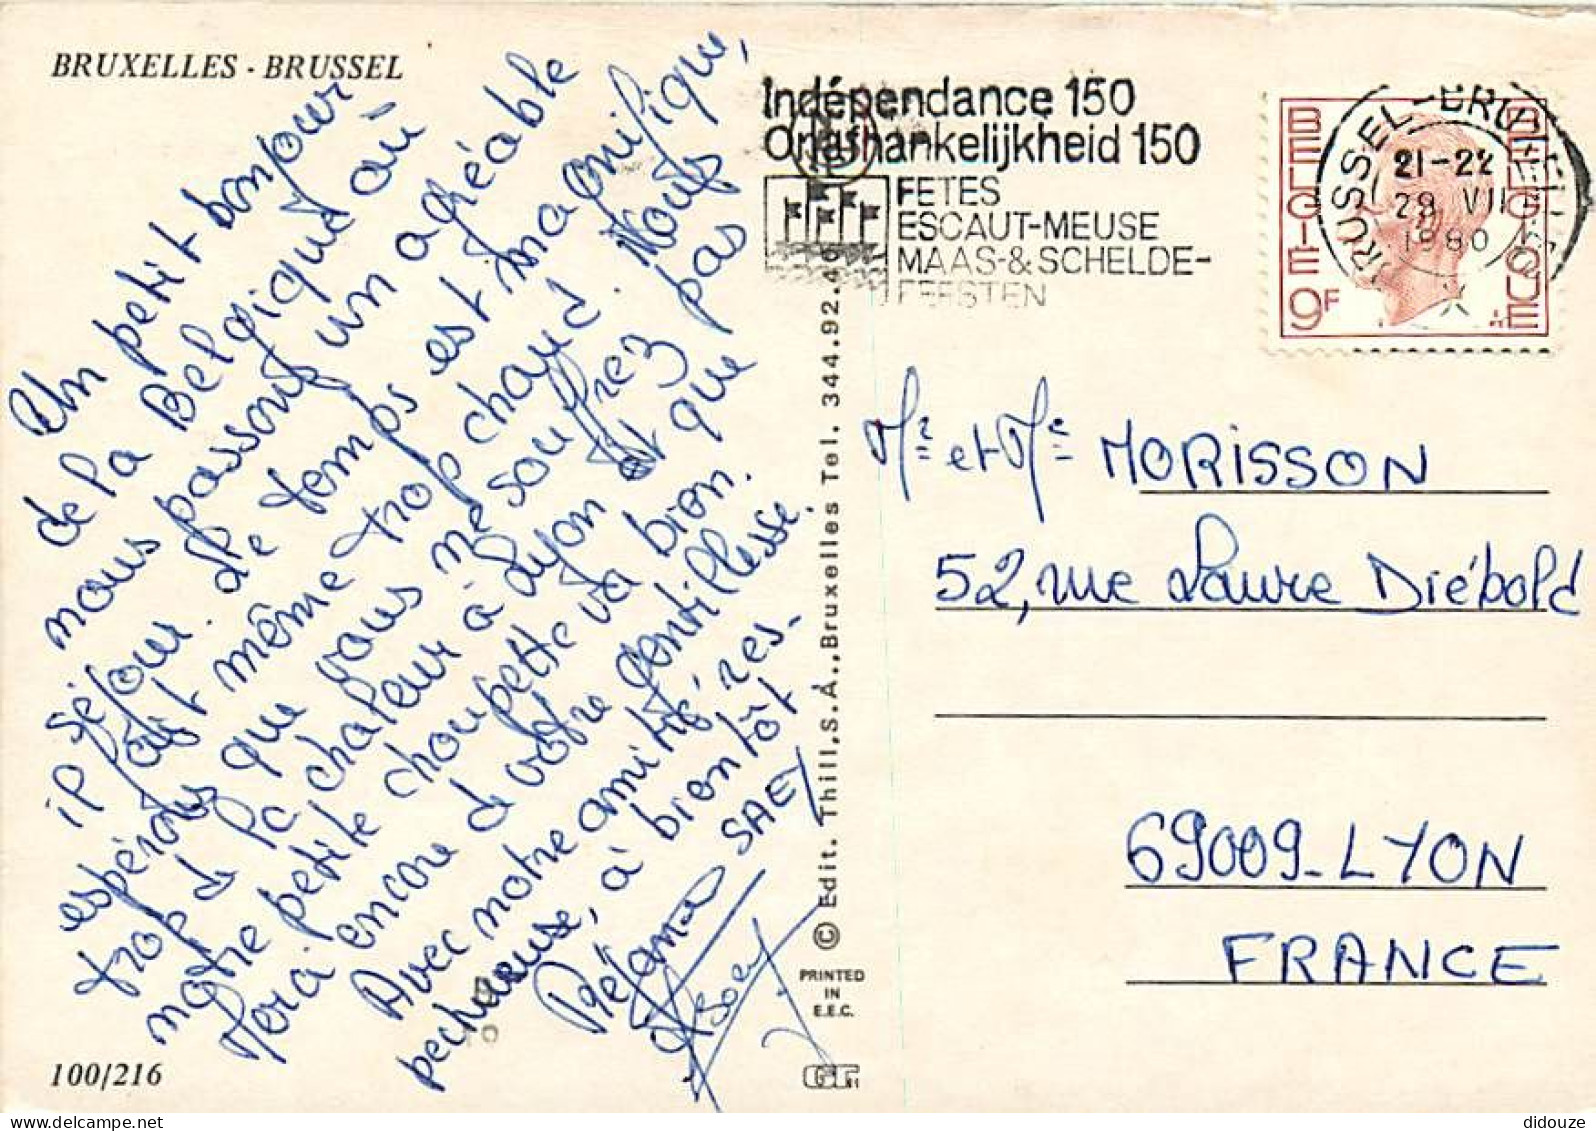 BRUXELLES - BRUSSEL
Un petit bonjour
de la Belgique où
nous passons un agréable
séjour. Le temps est magnifique,
il fait même trop chaud. Nous
espérons que vous ne souffrez pas
trop de la chaleur à Lyon et que
notre petite choupette va bien.
Merci encore de votre gentillesse.
Avec notre amitié, res-
pectueuse, à bientôt
SAEY
© Edit. Thill, S.A., Bruxelles Tel. 344.92.46
PRINTED
IN
E.E.C.
100/216
Indépendance 150
Onafhankelijkheid 150
FETES
ESCAUT-MEUSE
MAAS-& SCHELDE-
FEESTEN
BELGIE 9F
BELGIQUE
BRUSSEL - BRUXELLES
21-22
29 VII
1980
Mr et Me MORISSON
52, rue Laure Diébold
69009-LYON
FRANCE
didouze